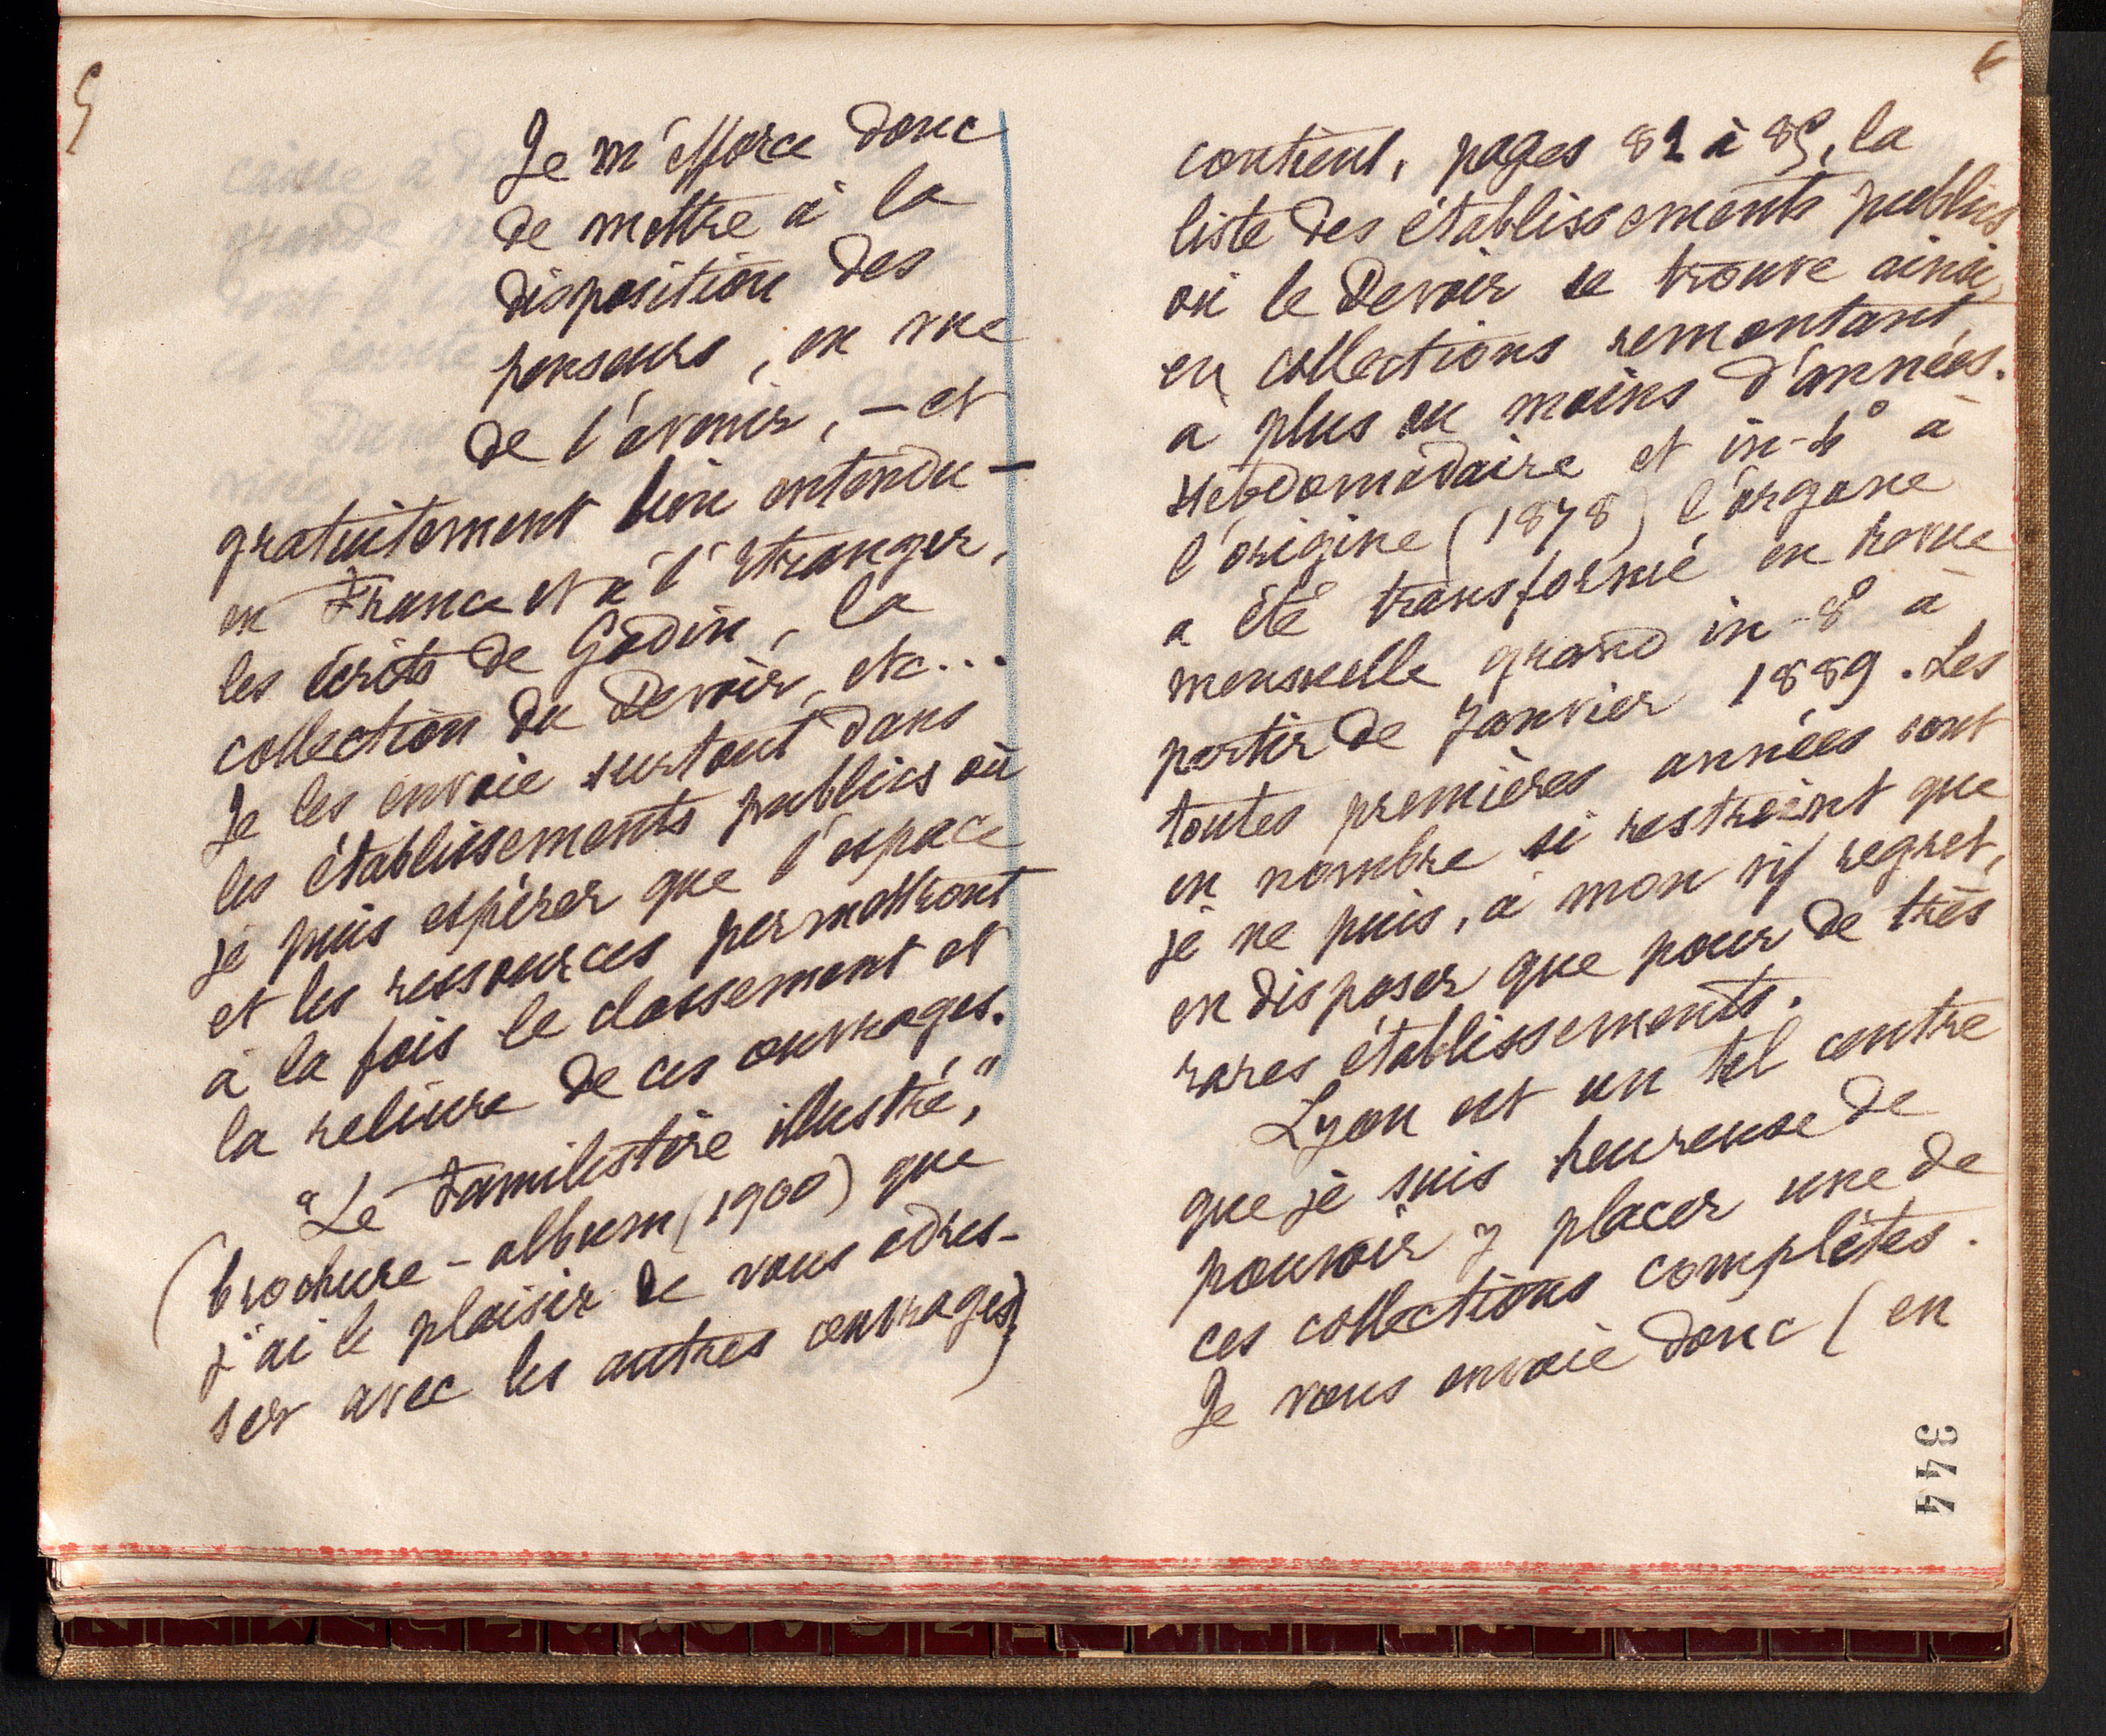 5
Je m'efforce donc
de mettre à la
disposition des
penseurs, en vue
de l'avenir, — et
gratuitement bien entendu —
en France et à l'étranger,
les écrits de Godin, la
collection du Devoir, etc...
Je les envoie surtout dans
les établissements publics où
je puis espérer que l'espace
et les ressources permettront
à la fois le classement et
la reliure de ces ouvrages.
"Le Familistère illustré,"
(brochure-album (1900) que
j'ai le plaisir de vous adres-
ser avec les autres ouvrages)
6
contient, pages 82 à 85, la
liste des établissements publics
où le Devoir se trouve ainsi,
en collections remontant
à plus ou moins d'années.
Hebdomadaire et in-4° à
l'origine (1878) l'organe
a été transformé en revue
mensuelle grand in-8° à
partir de Janvier 1889. Les
toutes premières années sont
en nombre si restreint que
je ne puis, à mon vif regret,
en disposer que pour de très
rares établissements.
Lyon est un tel centre
que je suis heureuse de
pouvoir y placer une de
ces collections complètes.
Je vous envoie donc (en
344